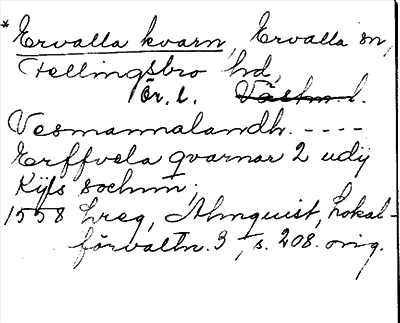 * Ervalla kvarn, Ervalla sn,
Fellingsbro hd,
Ör. l. Västm l.
Vesmannalandh. ----
Erffvela qvarnar 2 udij
Kijls sochnn;
1558 Lreg, Almquist, Lokal-
förvaltn. 3, s. 208. orig.